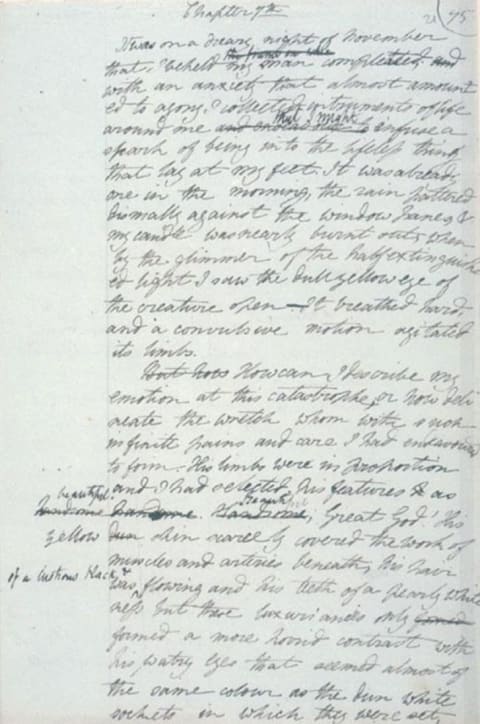 Chapter 7th
75
It was on a dreary night of November
that I beheld the frame on whic my man compleated and
with an anxiety that almost amount
ed to agony, I collected instruments of life
around me and endeavour that I might infuse a
spark of being into the lifeless thing
that lay at my feet. It was already
one in the morning, the rain pattered
dismally against the window panes, &
my candle was nearly burnt out, when
by the glimmer of the half extinguish
ed light I saw the dull yellow eye of
the creature open – It breathed hard,
and a convulsive motion agitated
its limbs.
But how How can I describe my
emotion at this catastrophe, or how deli
neate the wretch whom with such
infinite pains and care I had endeavoured
to form. His limbs were in proportion
and I had selected his features & as
beautiful
handsome handsome. Handsome, Beautiful; Great God! His
yellow dun skin scarcely covered the work of
muscles and arteries beneath; his hair
of a lustrous black, &
was flowing and his teeth of a pearly white
ness but these luxuriances only
formed a more horrid contrast with
his watry eyes that seemed almost of
the same colour as the dun white
sockets in which they were set,